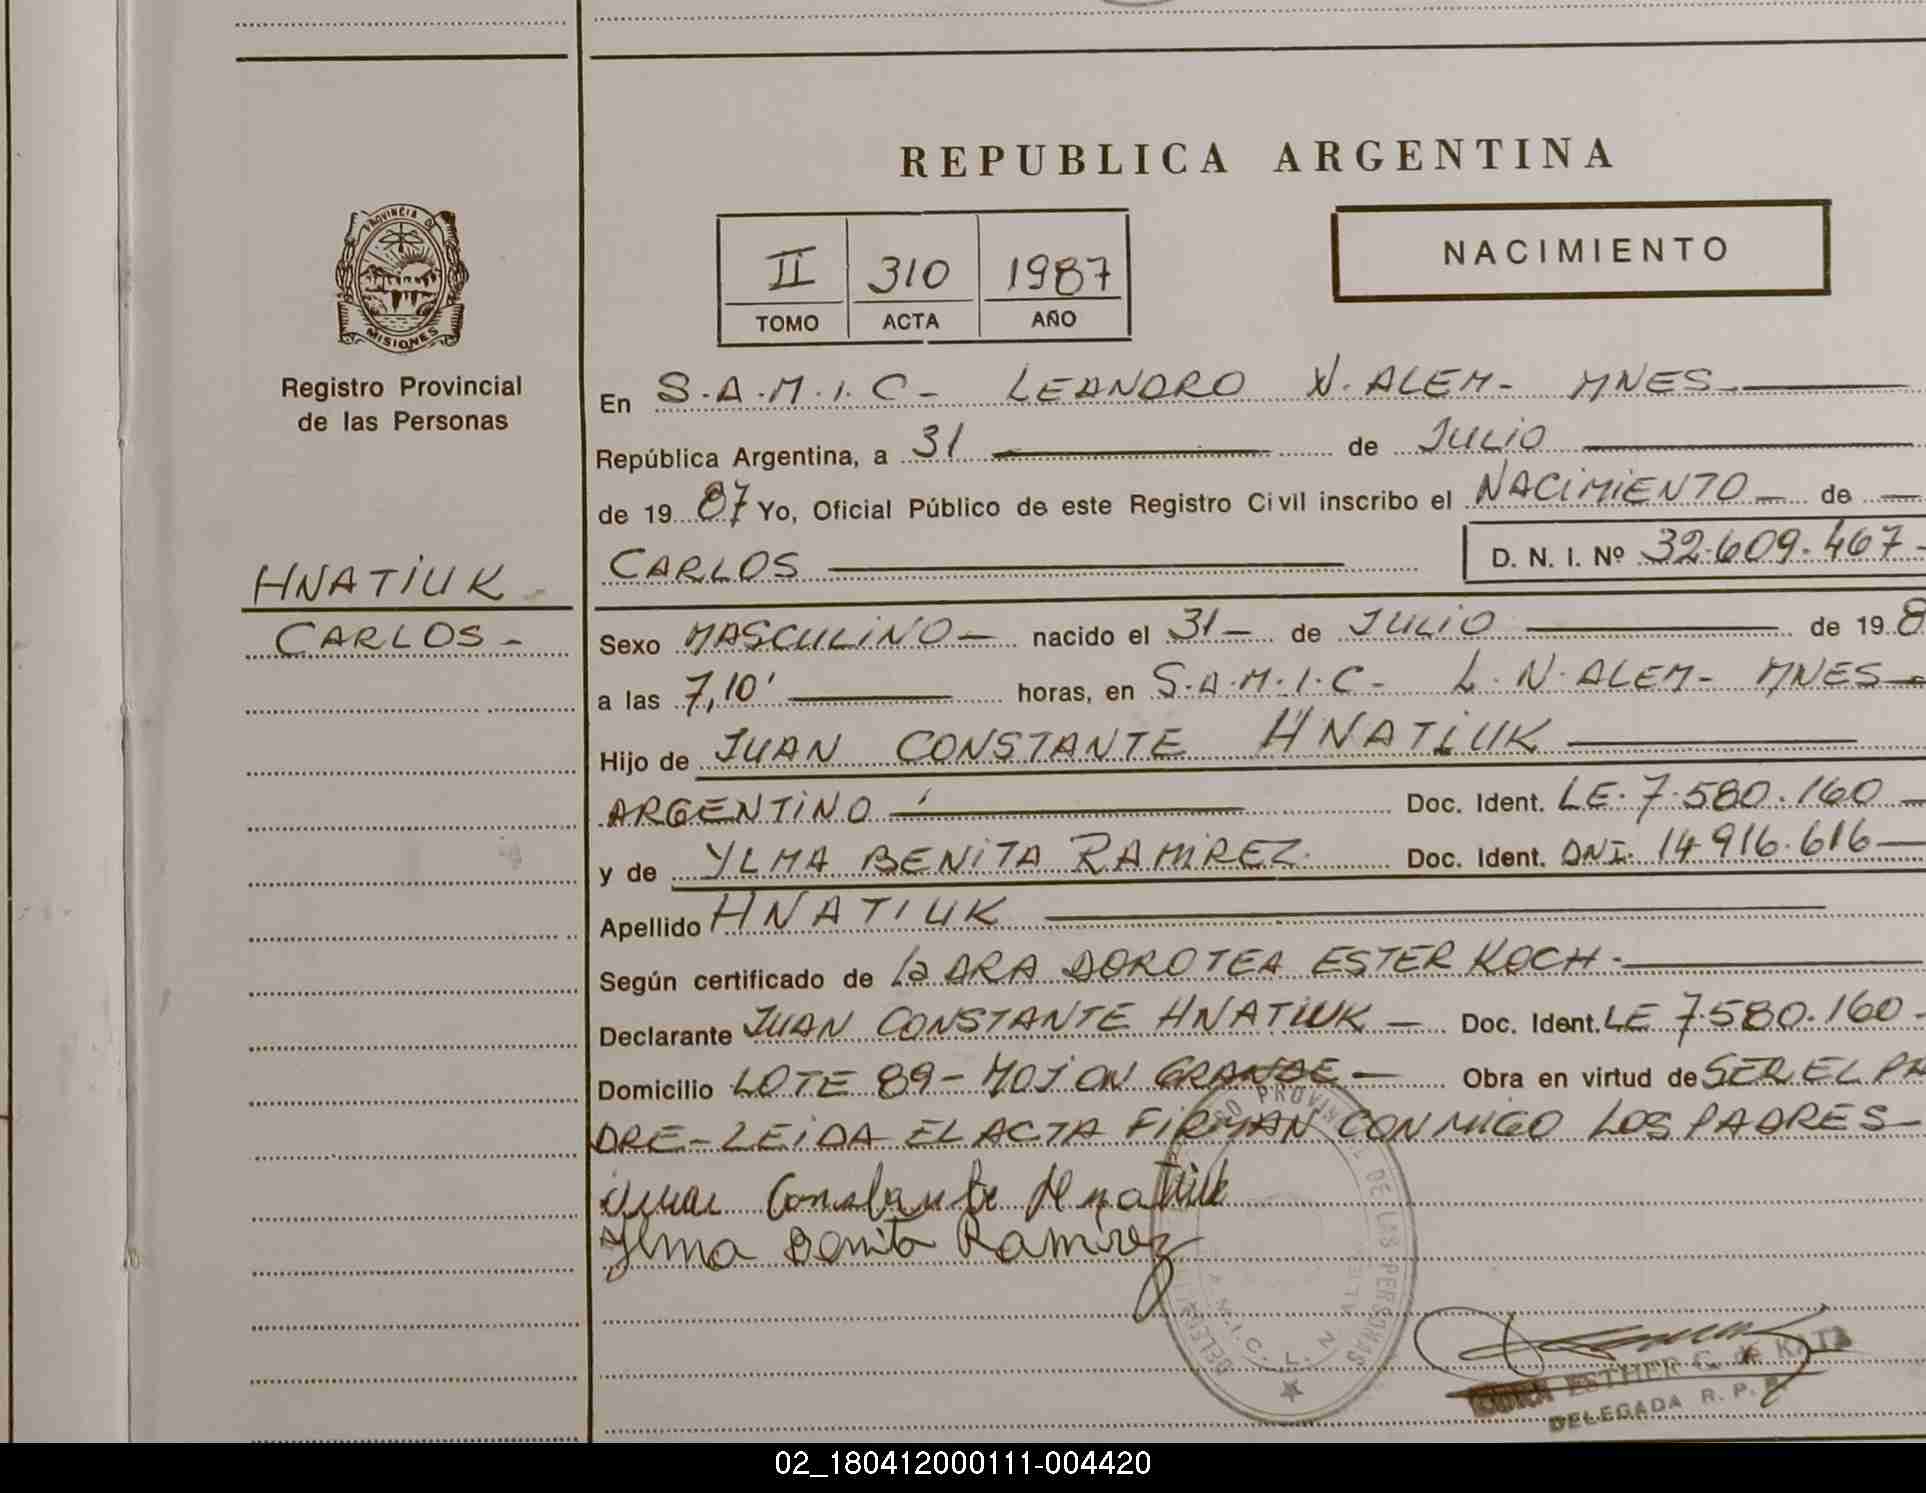 REPUBLICA ARGENTINA
PROVINCIA DE
MISIONES
Registro Provincial
de las Personas
II 310 1987
TOMO ACTA AÑO
NACIMIENTO
En S.A.M.I.C- LEANDRO N. ALEM- MNES-
República Argentina, a 31 de JULIO
de 19 87 Yo, Oficial Público de este Registro Civil inscribo el NACIMIENTO- de
CARLOS D. N. I. Nº 32.609.467-
HNATIUK
CARLOS-
Sexo MASCULINO- nacido el 31- de JULIO de 19 8
a las 7,10' horas, en S.A.M.I.C- L. N. ALEM- MNES-
Hijo de JUAN CONSTANTE HNATIUK
ARGENTINO Doc. Ident. LE. 7.580.160
y de YLMA BENITA RAMIREZ. Doc. Ident. DNI. 14.916.616-
Apellido HNATIUK
Según certificado de la DRA DOROTEA ESTER KOCH-
Declarante JUAN CONSTANTE HNATIUK- Doc. Ident. LE 7.580.160-
Domicilio LOTE 89- MOJON GRANDE- Obra en virtud de SER EL PA
DRE- LEIDA EL ACTA FIRMAN CONMIGO LOS PADRES-
Juan Constante Hnatiuk
Ylma Benita Ramirez
PROVINCIAL DE LAS PERSONAS
ESTHER C. de KATZ
DELEGADA R. P. P.
02_180412000111-004420